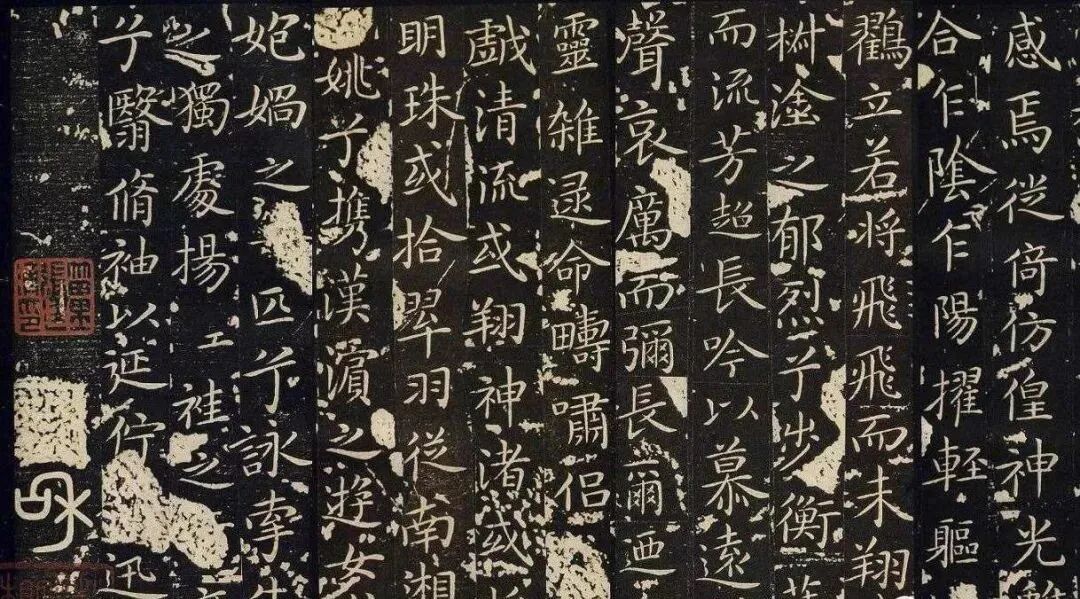 感焉徙倚仿偟神光離
合乍陰乍陽擢輕軀
鸛立若將飛飛而未翔
樹塗之郁烈兮步衡薄
而流芳超長吟以慕遠
聲哀厲而彌長爾迺
靈雜遝命疇嘯侶
戲清流或翔神渚或
明珠或拾翠羽從南湘
姚兮攜漢濱之遊女
媧之匹兮詠牽牛
之獨處揚工袿之
兮翳脩袖以延佇迅